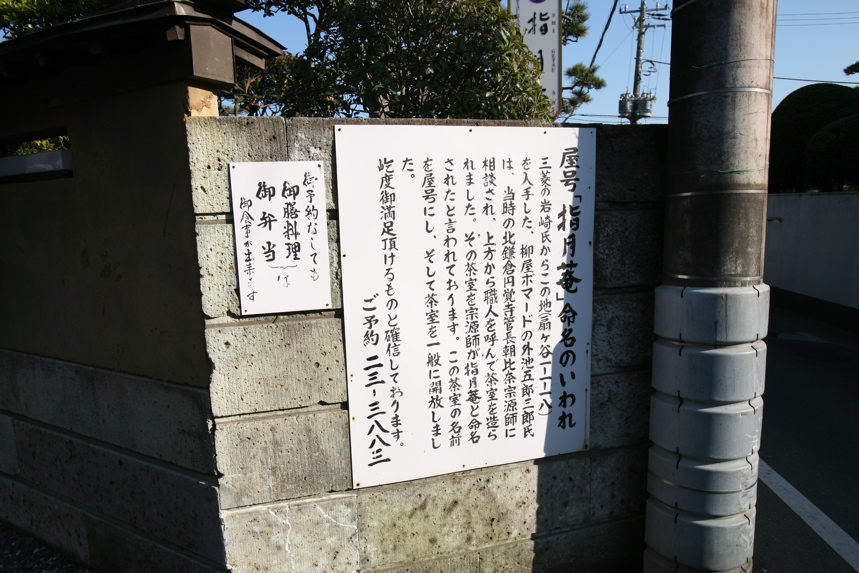 指月
屋号「指月菴」命名のいわれ
三菱の岩崎氏からこの地(扇ヶ谷一ー一ー八)
を入手した、柳屋ポマードの外池五郎三郎氏
は、当時の北鎌倉円覚寺管長朝比奈宗源師に
相談され、上方から職人を呼んで茶室を造ら
れました。その茶室を宗源師が指月菴と命名
されたと言われております。この茶室の名前
を屋号にし、そして茶室を一般に開放しまし
た。
屹度御満足頂けるものと確信しております。
ご予約 二三ー三八八三
御予約なしでも
御膳料理
御弁当
は
御食事が出来ます